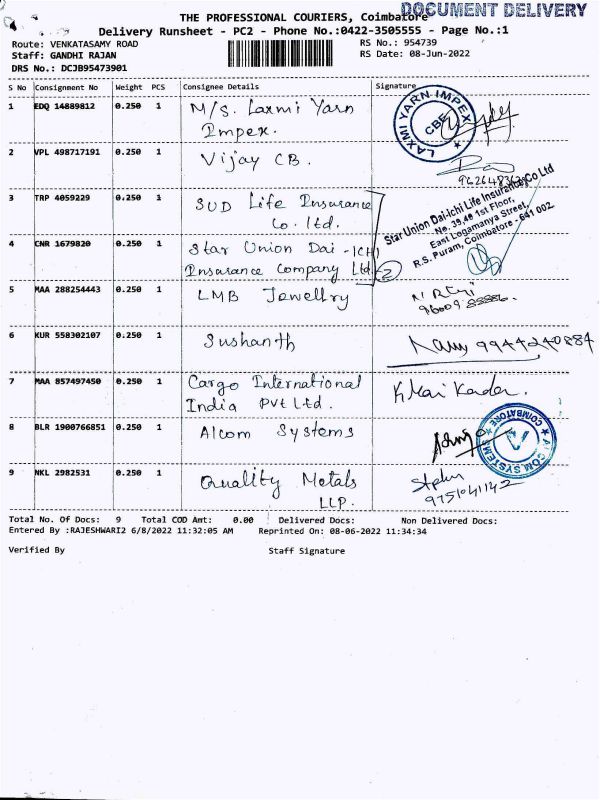 DOCUMENT DELIVERY
THE PROFESSIONAL COURIERS, Coimbatore
Delivery Runsheet - PC2 - Phone No.:0422-3505555 - Page No.:1
Route: VENKATASAMY ROAD
RS No.: 954739
Staff: GANDHI RAJAN
RS Date: 08-Jun-2022
DRS No.: DCJB95473901
S No Consignment No Weight PCS Consignee Details Signature
1 EDQ 14889812 0.250 1 M/s. Laxmi Yarn
Impex.
LAXMI YARN IMPEX
CBE
2 VPL 498717191 0.250 1 Vijay CB.
3 TRP 4059229 0.250 1 SUD Life Insurance
Co. ltd.
Star Union Dai-ichi Life Insurance Co Ltd
No. 39,40 1st Floor,
East Logamanya Street,
R.S. Puram, Coimbatore - 641 002.
4 CNR 1679820 0.250 1 Star Union Dai-ICHI
Insurance Company Ltd. 2
5 MAA 288254443 0.250 1 LMB Jewellry
6 KUR 558302107 0.250 1 Sushanth
9944240884
7 MAA 857497450 0.250 1 Cargo International
India Pvt Ltd.
8 BLR 1900766851 0.250 1 Alcom Systems
ALCOM SYSTEMS
COIMBATORE
9 NKL 2982531 0.250 1 Quality Metals
LLP.
9751041142
Total No. Of Docs: 9 Total COD Amt: 0.00 Delivered Docs: Non Delivered Docs:
Entered By :RAJESHWARI2 6/8/2022 11:32:05 AM Reprinted On: 08-06-2022 11:34:34
Verified By Staff Signature